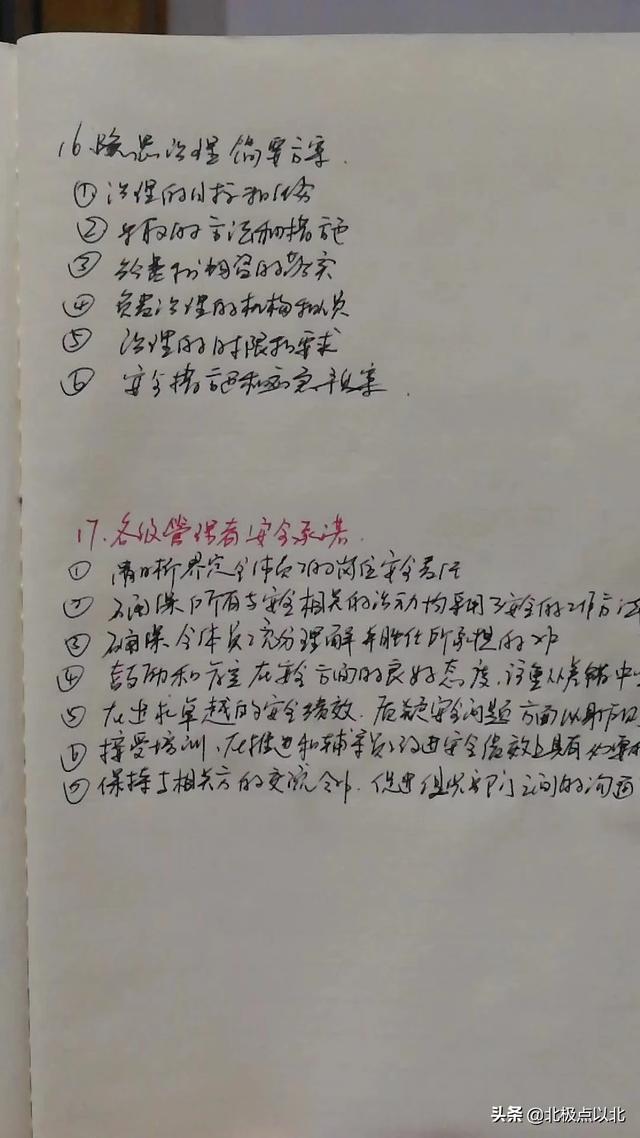 16.隐患治理简要方案.
① 治理的目标和任务
② 采取的方法和措施
③ 经费和物资的落实
④ 负责治理的机构和人员
⑤ 治理的时限和要求
⑥ 安全措施和应急预案.
17.各级管理者安全承诺.
① 清晰界定全体员工的岗位安全责任
② 确保所有与安全相关的活动均采用了安全的工作方法
③ 确保全体员工充分理解并胜任所承担的工作
④ 鼓励和肯定在安全方面的良好态度,注重从差错中
⑤ 在追求卓越的安全绩效、质疑安全问题方面以身作则
⑥ 接受培训、在推进和辅导员工改进安全绩效上具有必要的
⑦ 保持与相关方的交流合作,促进组织部门之间的沟通
头条 @北极点以北